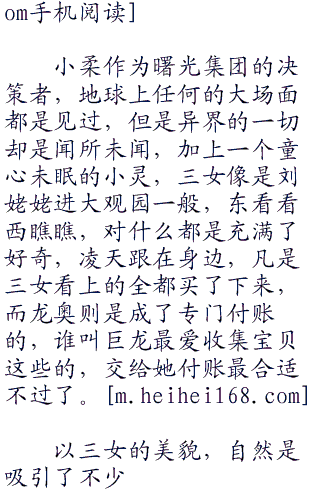 om手机阅读]
小柔作为曙光集团的决
策者，地球上任何的大场面
都是见过，但是异界的一切
却是闻所未闻，加上一个童
心未眠的小灵，三女像是刘
姥姥进大观园一般，东看看
西瞧瞧，对什么都是充满了
好奇，凌天跟在身边，凡是
三女看上的全都买了下来，
而龙奥则是成了专门付账
的，谁叫巨龙最爱收集宝贝
这些的，交给她付账最合适
不过了。[m.heihei168.com]
以三女的美貌，自然是
吸引了不少